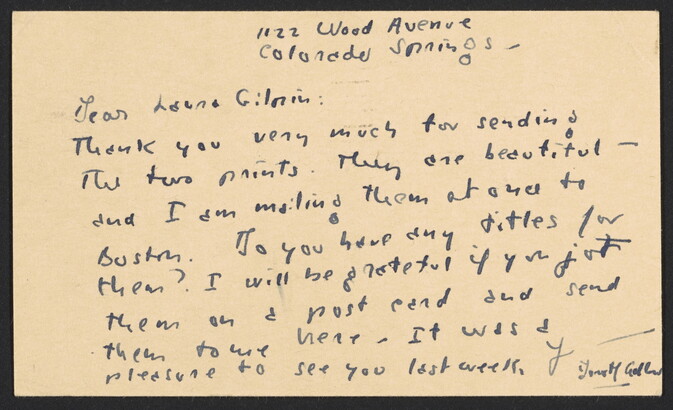 1122 Wood Avenue
Colorado Springs -
Dear Laura Gilpin:
Thank you very much for sending
the two prints. They are beautiful -
and I am mailing them at once to
Boston. Do you have any titles for
them? I will be grateful if you jot
them on a post card and send
them to me here. It was a
pleasure to see you last week.